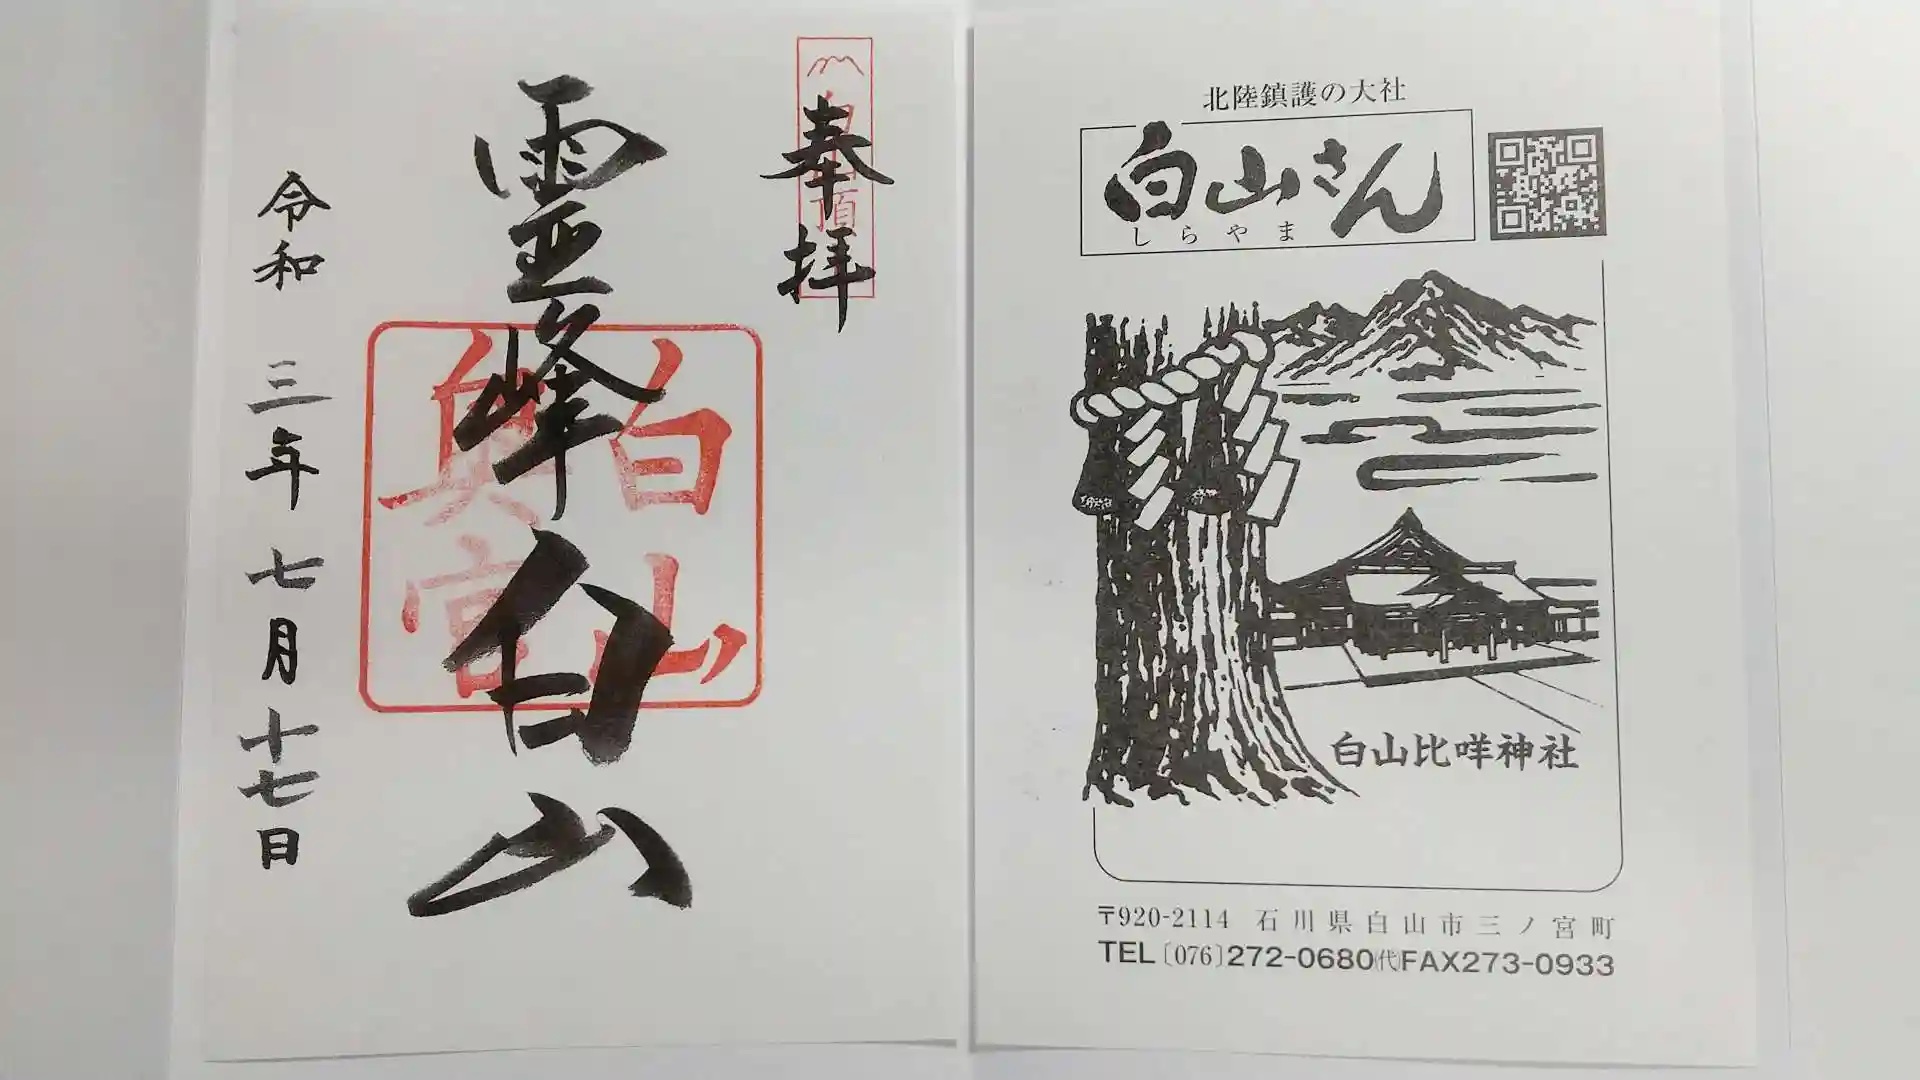 奉拝
霊峰白山
白山
奥宮
令和三年七月十七日
北陸鎮護の大社
白山さん
しらやま
白山比咩神社
〒920-2114 石川県白山市三ノ宮町
TEL〔076〕272-0680㈹FAX273-0933